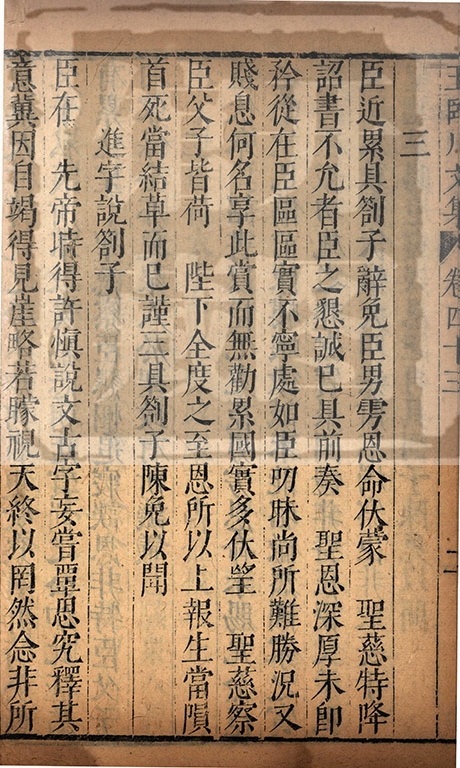 王臨川文集 卷四十三 二
三
臣近累具劄子辭免臣男雱恩命伏蒙 聖慈特降
詔書不允者臣之懇誠已具前奏 聖恩深厚未卽
矜從在臣區區實不寧處如臣叨昧尚所難勝況又
賤息何名享此賞而無勸累國實多伏望 聖慈察
臣父子皆荷 陛下全度之至恩所以上報生當隕
首死當結草而已謹三具劄子陳免以聞
進字說劄子
臣在 先帝時得許慎說文古字妄嘗覃思究釋其
意冀因自竭得見崖略若矇視天終以罔然念非所